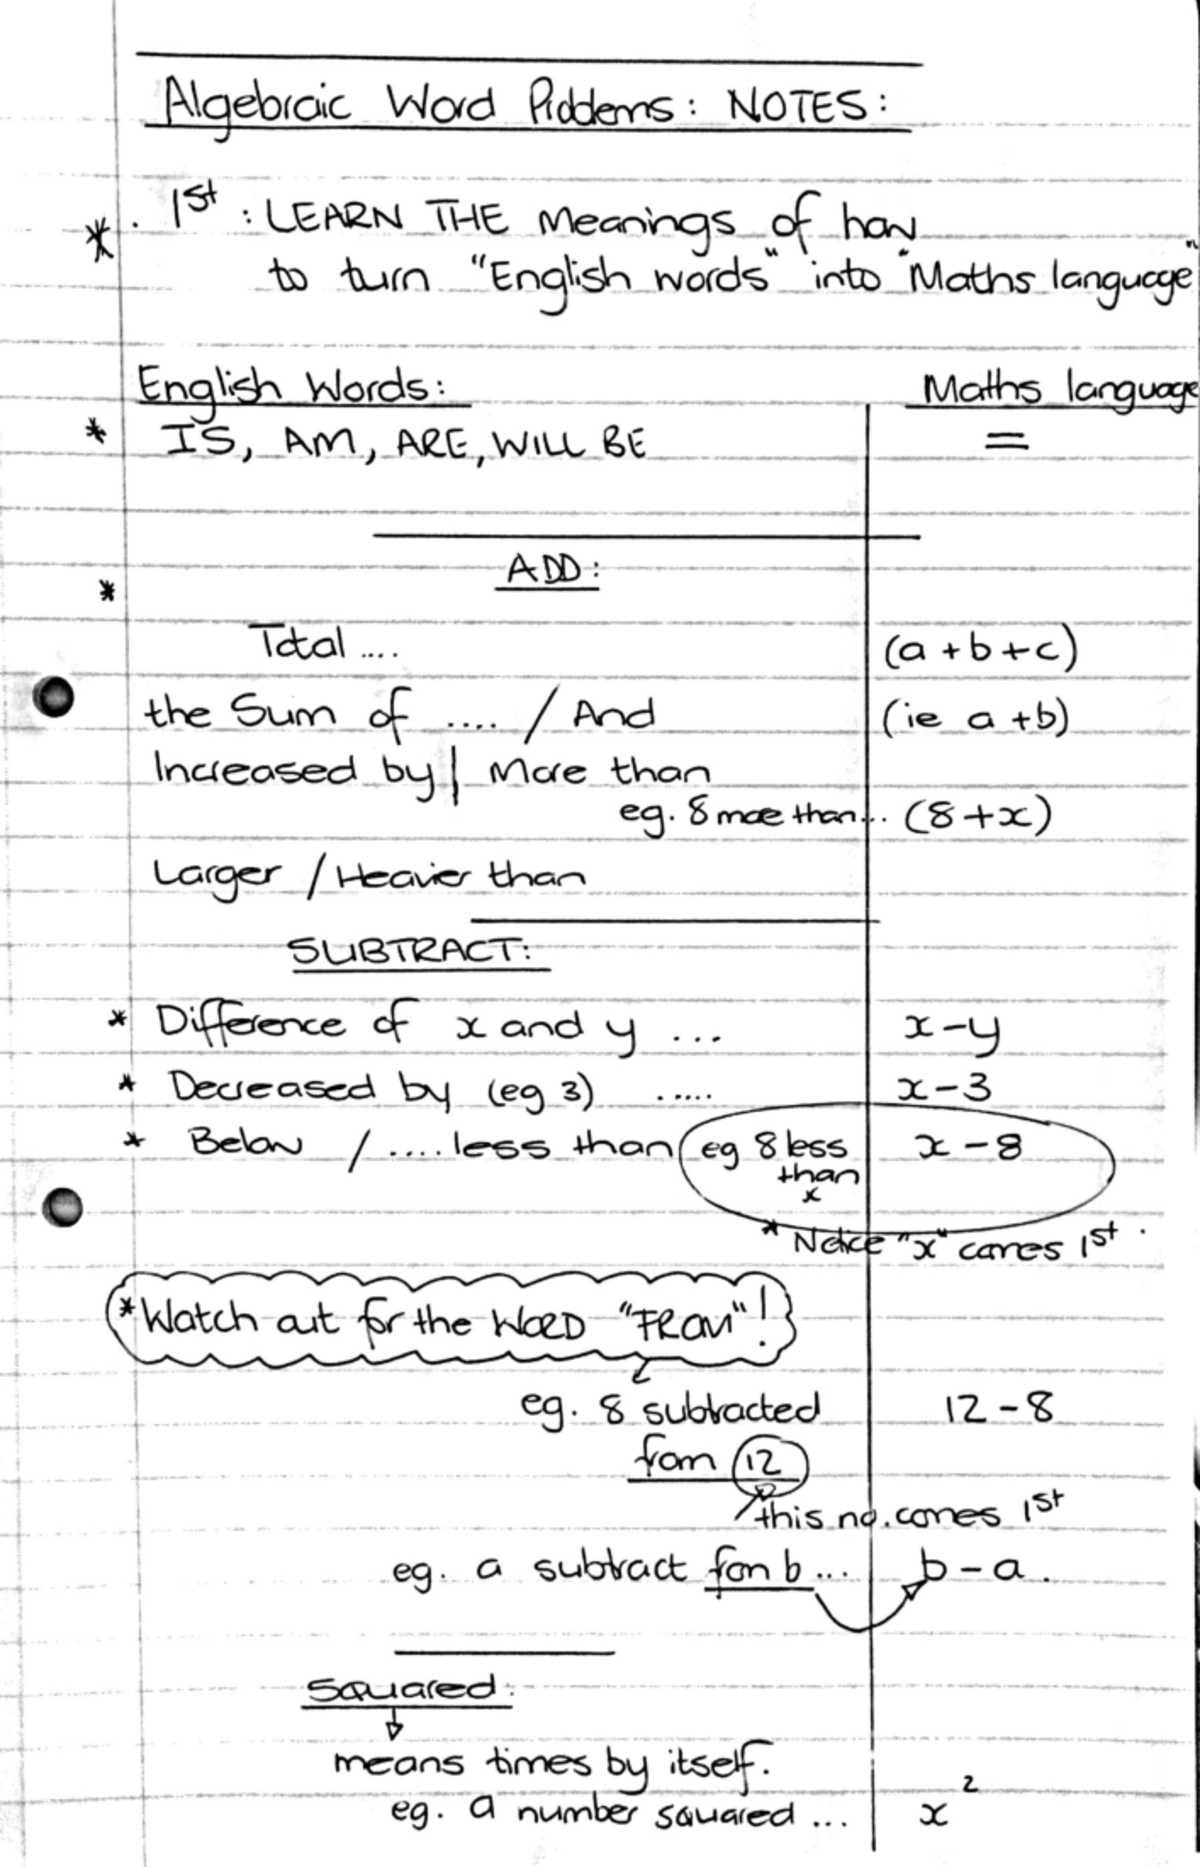 Algebraic Word Problems: NOTES:
* . 1st : LEARN THE Meanings of how
to turn "English words" into "Maths language"
English Words: Maths language
* IS, AM, ARE, WILL BE =
ADD:
*
Total .... (a + b + c)
the Sum of .... / And (ie a + b)
Increased by | More than
eg. 8 more than... (8 + x)
Larger / Heavier than
SUBTRACT:
* Difference of x and y ... x - y
* Decreased by (eg 3) ..... x - 3
* Below / .... less than eg 8 less x - 8
than
x
* Notice "x" comes 1st.
* Watch out for the WORD "FROM"!
eg. 8 subtracted 12 - 8
from 12
this no. comes 1st
eg. a subtract from b ... b - a.
Squared:
means times by itself.
eg. a number squared ... x²